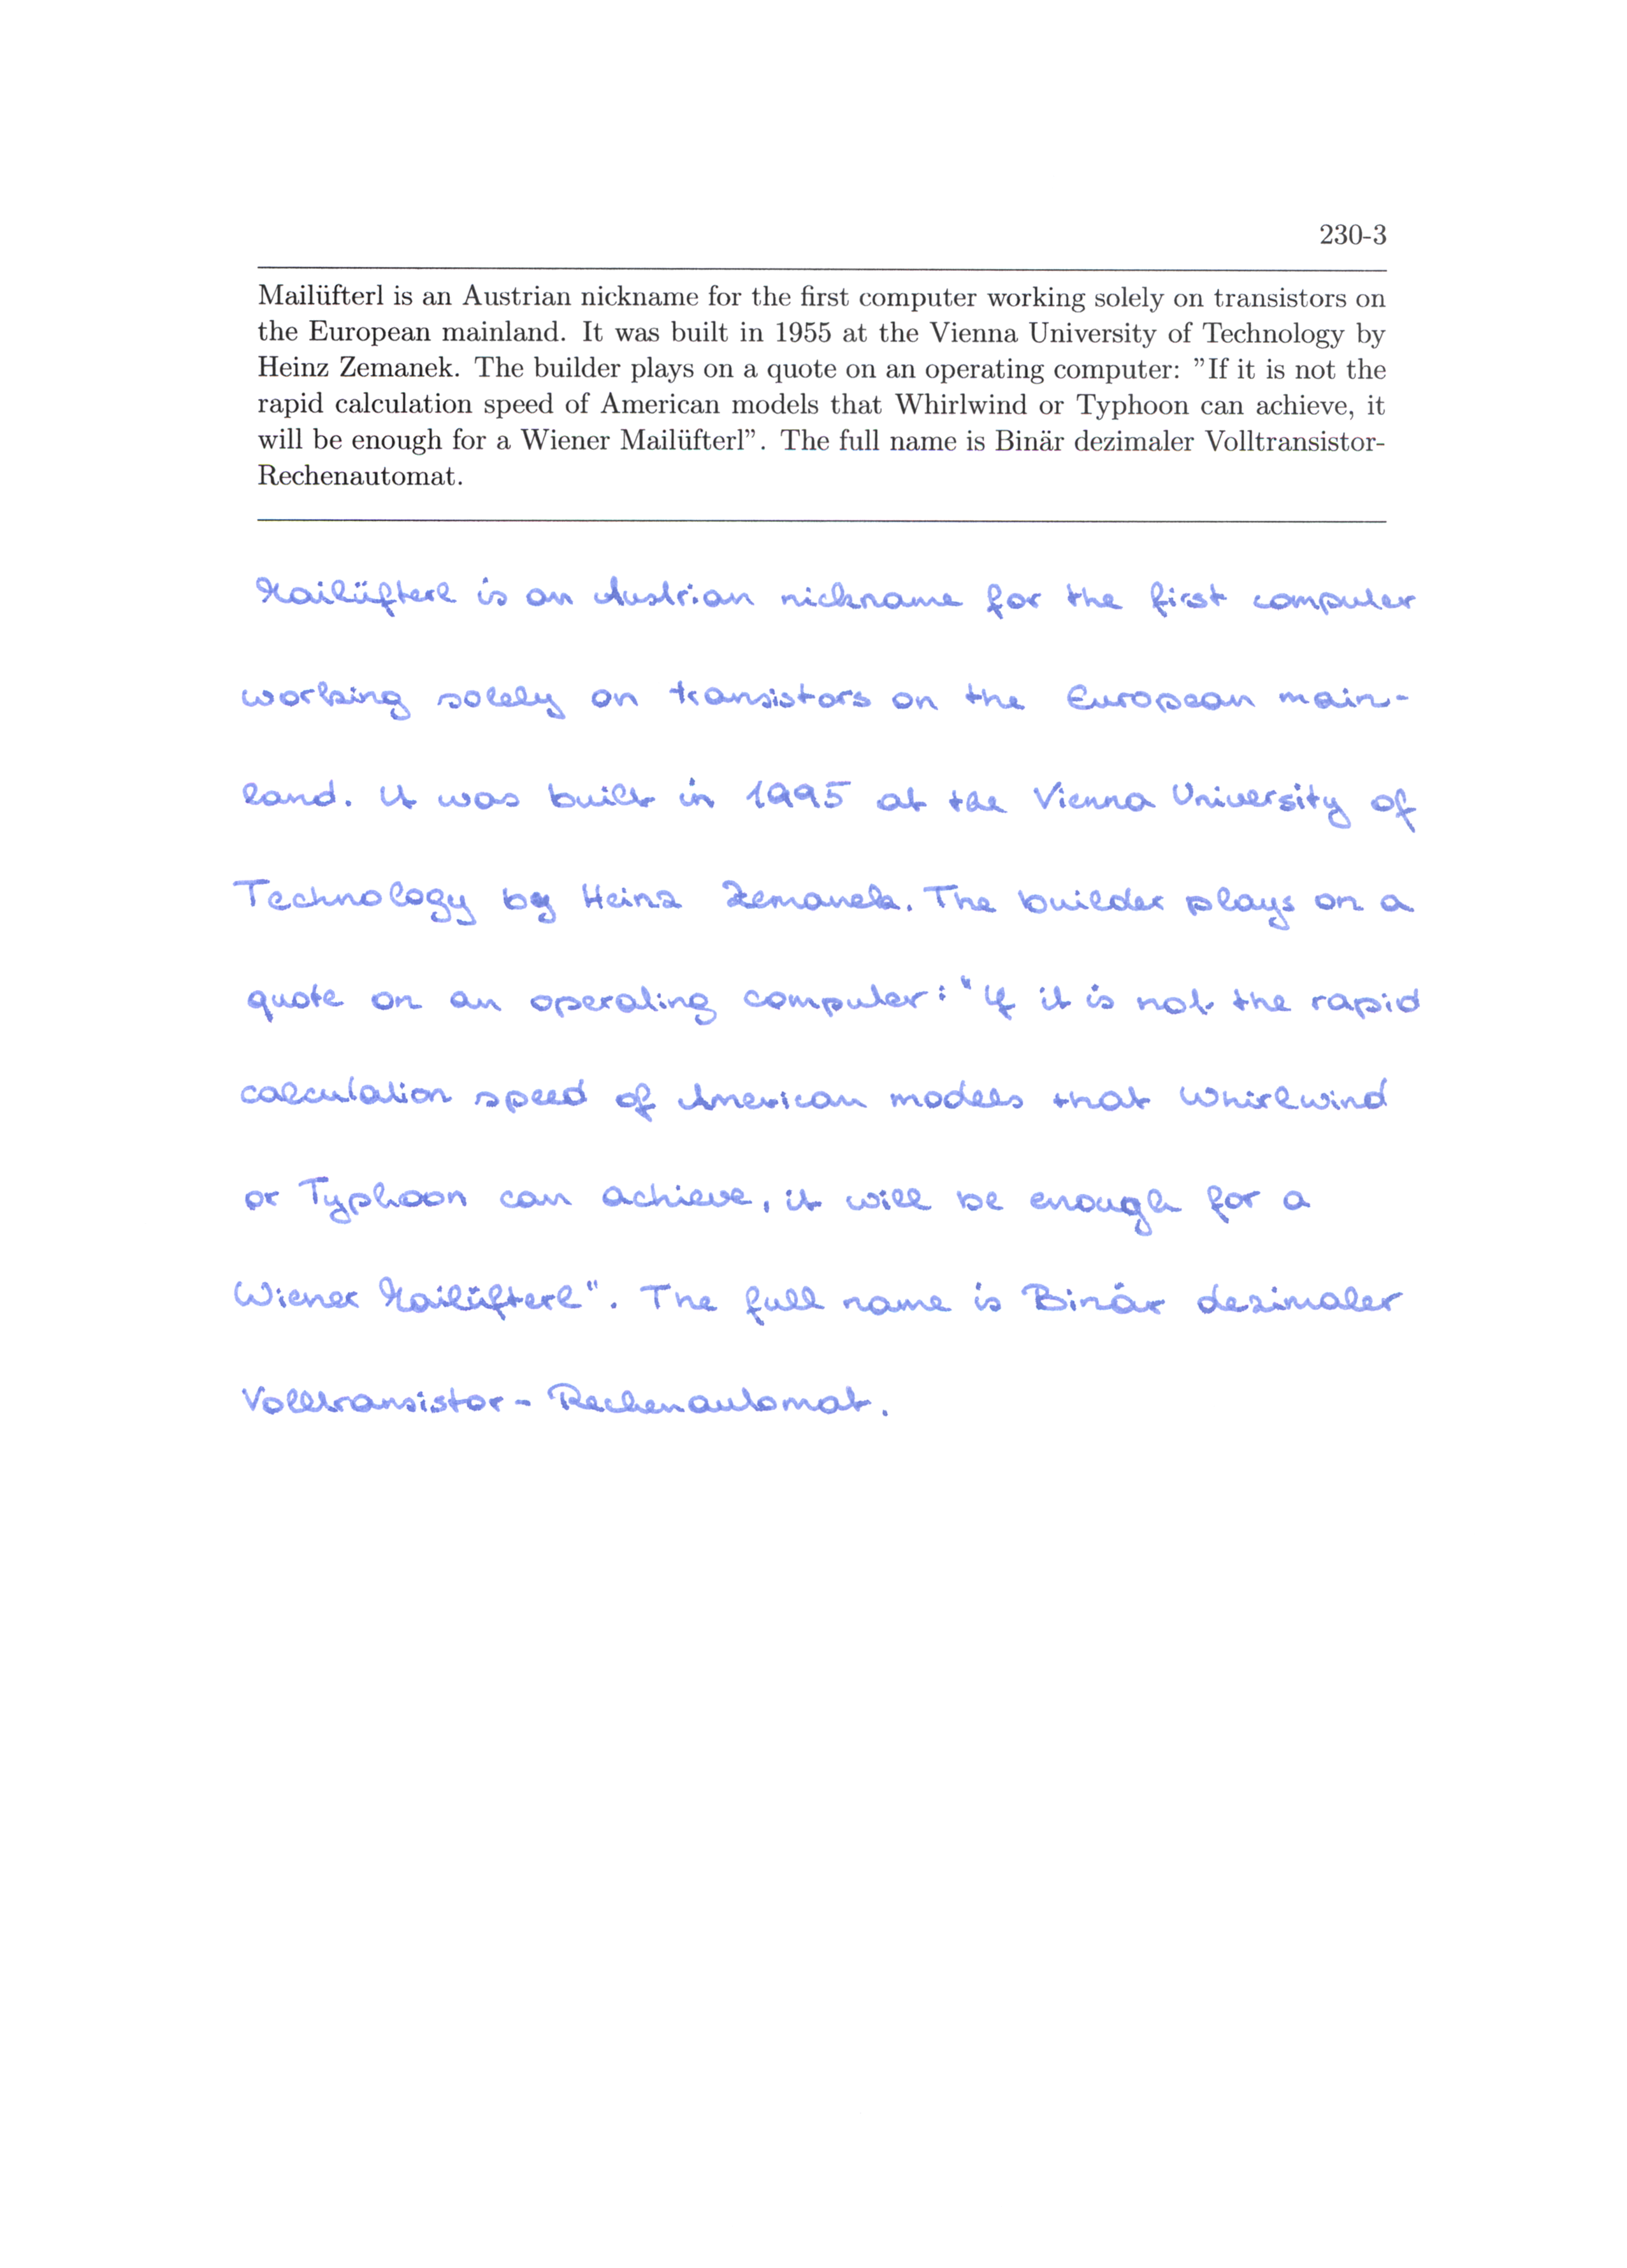 230-3
Mailüfterl is an Austrian nickname for the first computer working solely on transistors on
the European mainland. It was built in 1955 at the Vienna University of Technology by
Heinz Zemanek. The builder plays on a quote on an operating computer: ”If it is not the
rapid calculation speed of American models that Whirlwind or Typhoon can achieve, it
will be enough for a Wiener Mailüfterl”. The full name is Binär dezimaler Volltransistor-
Rechenautomat.
Mailüfterl is an Austrian nickname for the first computer
working solely on transistors on the European main-
land. It was built in 1995 at the Vienna University of
Technology by Heinz Zemanek. The builder plays on a
quote on an operating computer: "If it is not the rapid
calculation speed of American models that Whirlwind
or Typhoon can achieve, it will be enough for a
Wiener Mailüfterl". The full name is Binär dezimaler
Volltransistor - Rechenautomat.